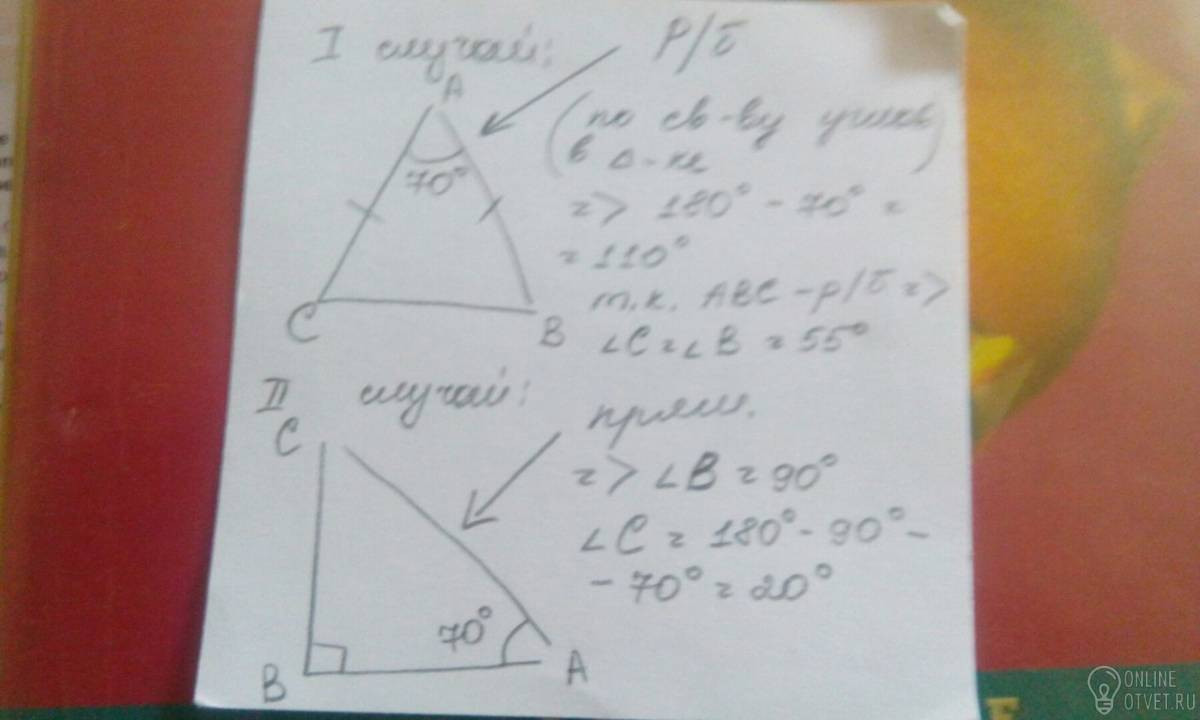 I случай:
Р/б
A
70°
C
B
(по св-ву углов
в Δ-ке)
=> 180° - 70° =
= 110°
т.к. ABC - р/б =>
∠C = ∠B = 55°
II случай:
C
70°
B
A
прям.
=> ∠B = 90°
∠C = 180° - 90° -
- 70° = 20°
ONLINE
OTVET.RU